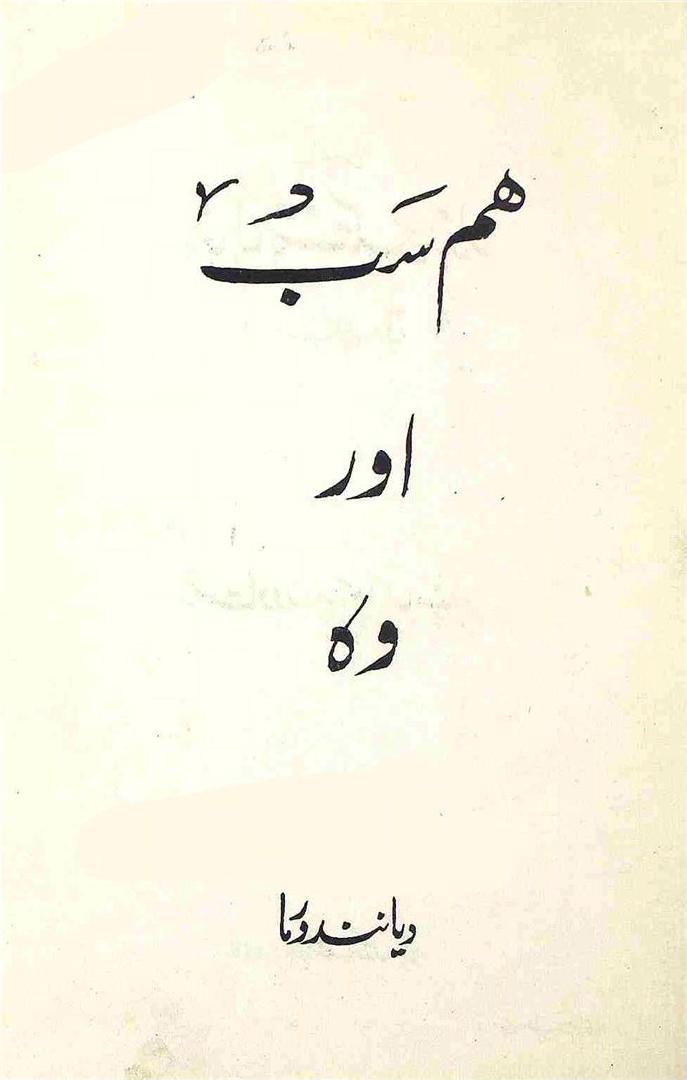 ہم سَب
اور
وہ
دیانند ورما